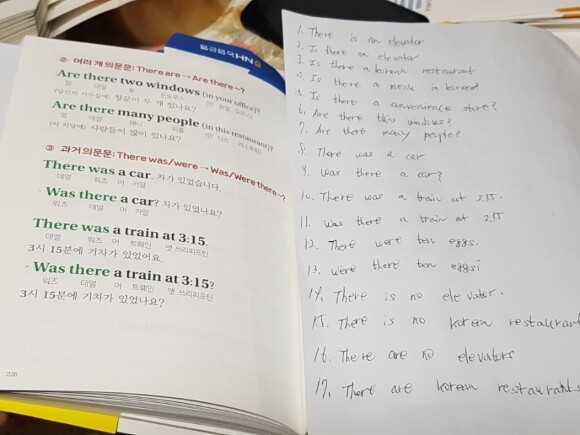 ② 여러 개 의문문: There are → Are there ~?
Are there two windows (in your office)?
얼 데얼 투 윈도우스
(당신의 사무실에) 창문이 두 개 있나요?
Are there many people (in this restaurant)?
얼 데얼 매니 피플
(이 식당에) 사람들이 많이 있나요?
③ 과거 의문문: There was/were → Was/Were there ~?
There was a car. 차가 있었습니다.
데얼 워즈 어 카얼
- Was there a car? 차가 있었나요?
워즈 데얼 어 카얼
There was a train at 3:15.
데얼 워즈 어 트웨인 앳 쓰리피프틴
3시 15분에 기차가 있었어요.
- Was there a train at 3:15?
워즈 데얼 어 트웨인 앳 쓰리피프틴
3시 15분에 기차가 있었나요?
228
1. There is an elevator
2. Is there an elevator
3. Is there a korean restaurant
4. Is there a in korean?
5. Is there a convenience store?
6. Are there two windows?
7. Are there many people?
8. There was a car
9. Was there a car?
10. There was a train at 3:15.
11. was there a train at 3:15
12. There were ten eggs.
13. were there ten eggs?
14. There is no elevator.
15. There is no korean restaurant
16. There are no elevators
17. There are korean restaurants